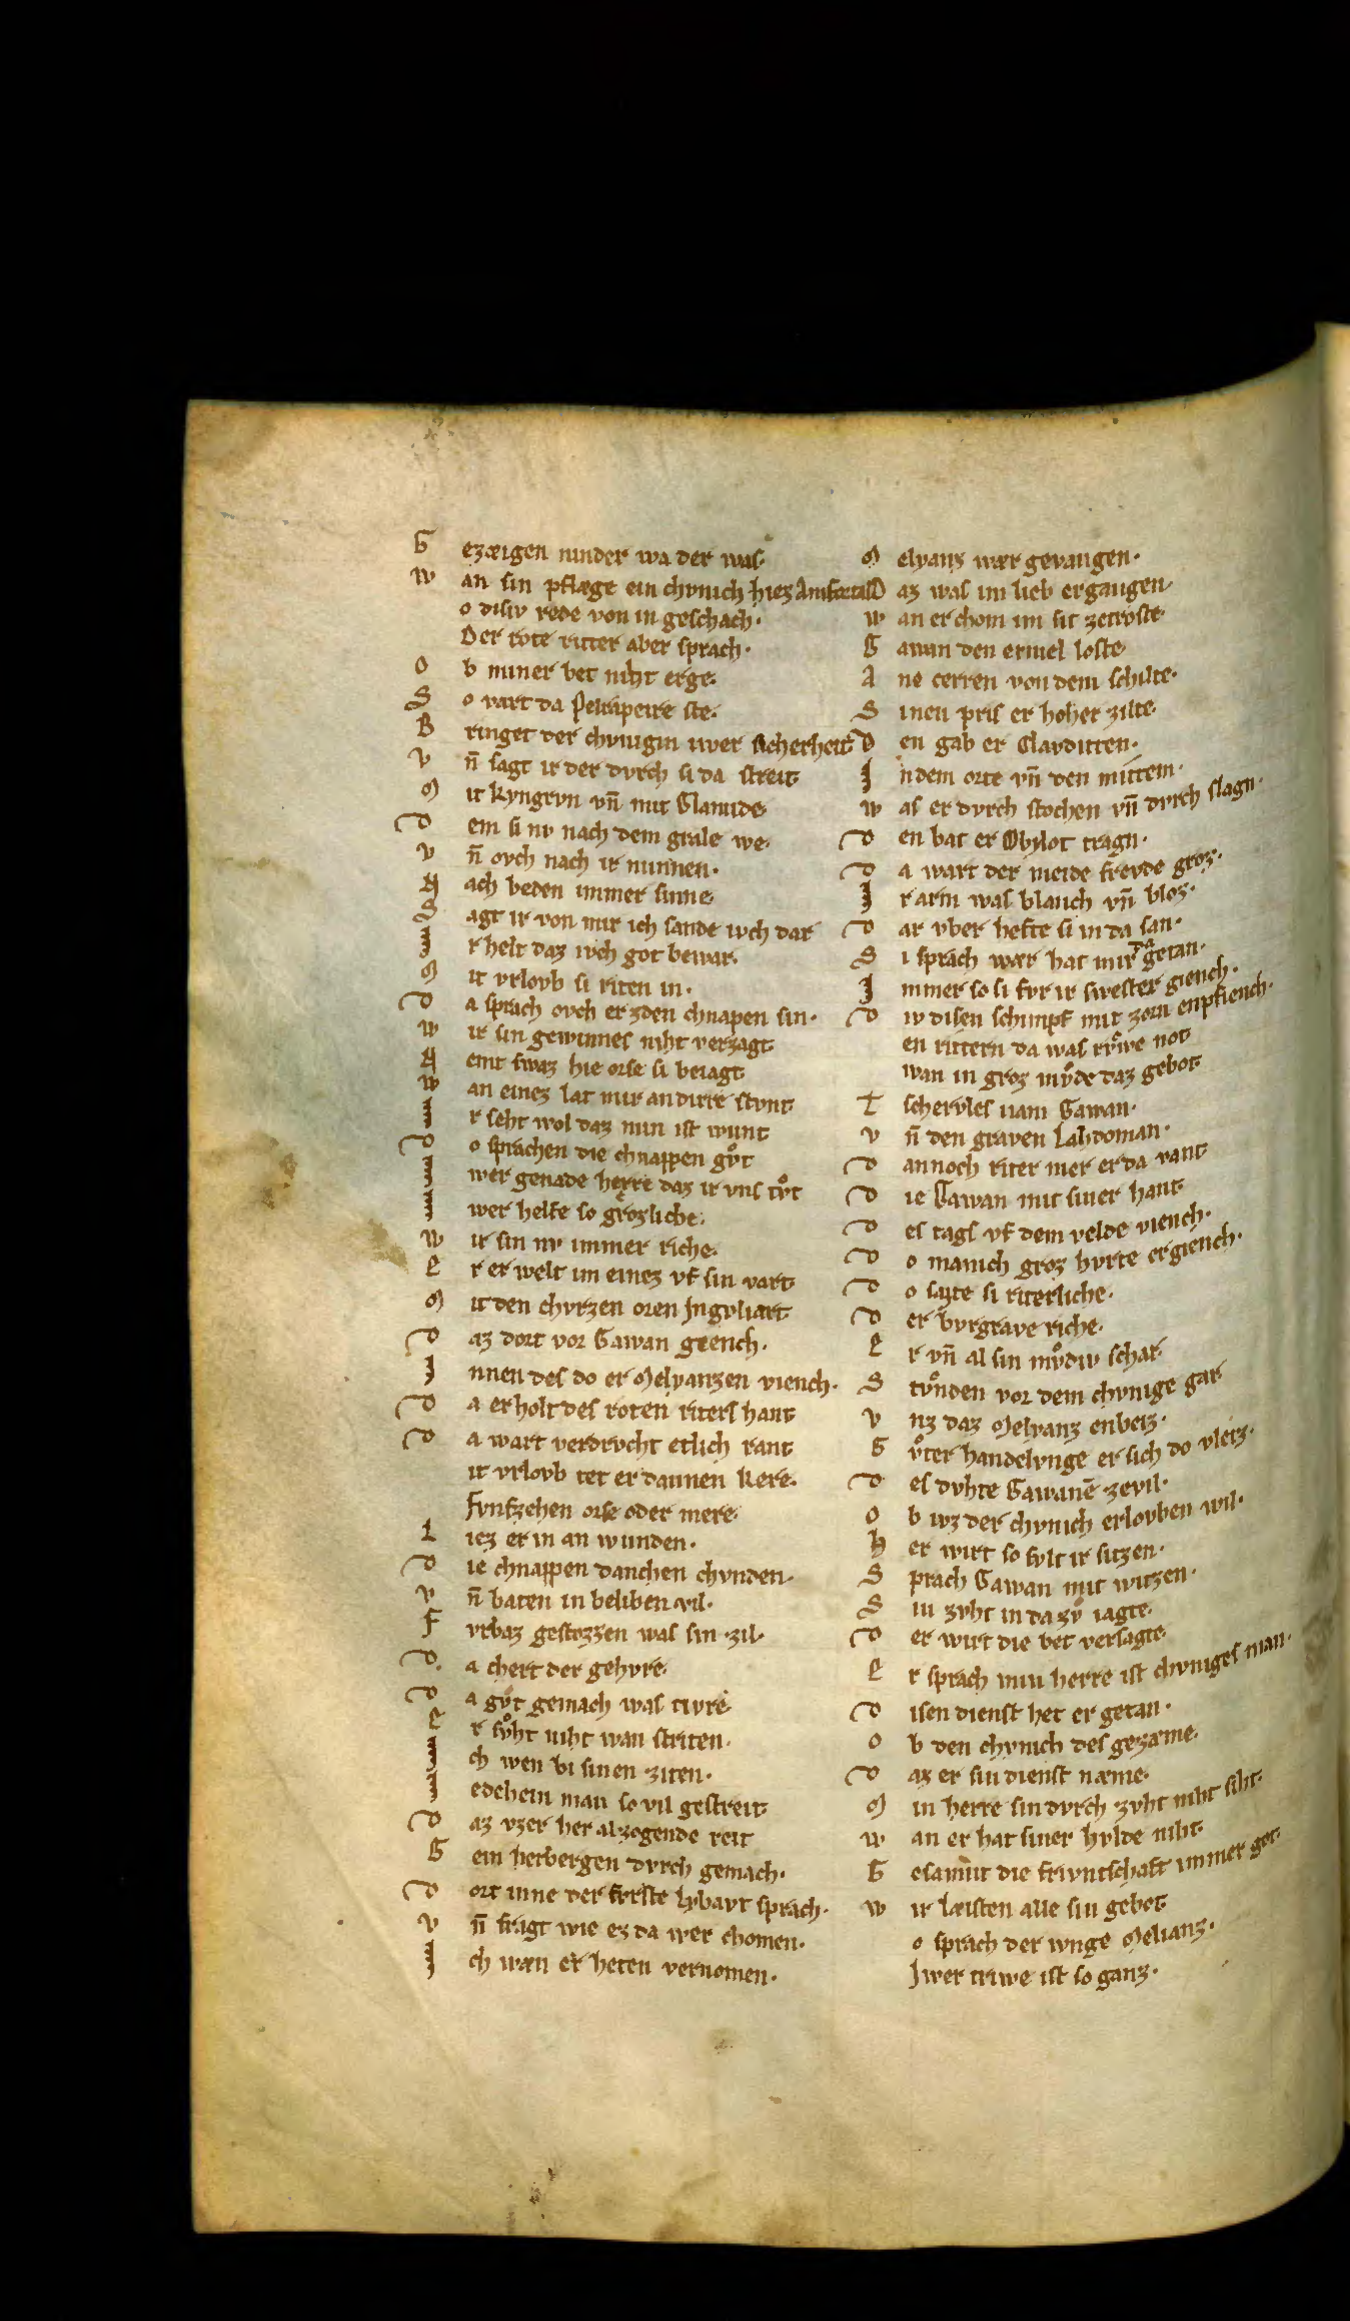 G ezæigen ninder wa der was·
W an sin pflæge ein chvnich hiez Amfortas
o disiv rede von in geschach·
Der rote ritter aber sprach·
O b miner bet niht erge·
S o vart da Pelrapeire ste·
B ringet der chvnigin iwer sicherheit
V n̄ sagt ir der dvrch si da streit
M it kyngrvn vn̄ mit Clamide
D em si nv nach dem grale we·
V n̄ ovch nach ir minnen·
N ach beden immer sinne
S agt ir von mir ich sande ivch dar
I r helt daz ivch got bewar·
M it vrlovb si riten in·
D a sprach ovch er zden chnapen sin·
W ir sin gewinnes niht verzagt
N emt swaz hie orse si beiagt
W an einez lat mir an dirre stvnt
I r seht wol daz min ist wunt
D o sprachen die chnappen gvͦt
I wer genade herre daz ir vns tvͦt
I wer helfe so grozliche·
W ir sin nv immer riche·
E r er welt im einez vf sin vart
M it den chvrzen oren Ingvliart
D az dort vor Gawan giench·
I nnen des do er Melyanzen viench·
D a erholt des roten riters hant
D a wart verdrvcht etlich rant
it vrlovb tet er dannen kere·
Fvnfzehen orse oder mere·
L iez er in an wunden·
D ie chnappen danchen chvnden·
V n̄ baten in beliben vil·
F vrbaz gestozzen was sin zil·
D a chert der gehvre·
D a gvͦt gemach was tivre
E r svͦht niht wan striten·
I ch wen bi sinen ziten·
I edehein man so vil gestreit
D az vzer her al zogende reit
G ein herbergen dvrch gemach·
D ort inne der fvrste Lybavt sprach·
V n̄ fragt wie ez da wer chomen·
I ch wæn er heten vernomen·
M elyanz wær gevangen·
D az was im lieb ergangen·
W an er chom im sit zetroste
G awan den ermel loste
A ne cerren von dem schilte·
S inen pris er hoher zilte·
D en gab er Clavditten·
I n dem orte vn̄ den mittem·
W as er dvrch stochen vn̄ dvrch slagn·
D en bat er Obylot tragn·
D a wart der meide frevde groz·
I r arm was blanch vn̄ bloz·
D ar vber hefte si in da san·
S i sprach wær hat mir da getan·
I mmer so si fvr ir swester giench·
D iv disen schimpf mit zorn enpfiench·
en rittern da was rvͦwe not
wan in groz mvͦde daz gebot
T schervles nam Gawan·
V n̄ den graven Lahdoman·
D annoch riter mer er da vant
D ie Gawan mit siner hant
D es tags vf dem velde viench·
D o manich groz hvrte ergiench·
D o sazte si riterliche·
D er bvrgrave riche·
E r vn̄ al sin mvͦdiv schar
S tvͦnden vor dem chvnige gar
V nz daz Melyanz enbeiz·
G vͦter handelvnge er sich do vleiz·
D es dvhte Gawanē zevil·
O b iwz der chvnich erlovben wil·
H er wirt so svlt ir sitzen·
S prach Gawan mit witzen·
S in zvht in da zvͦ iagte·
D er wirt die bet versagte·
E r sprach min herre ist chvniges man·
D isen dienst het er getan·
O b den chvnich des gezæme·
D az er sin dienst næme·
M in herre sin dvrch zvht niht siht·
W an er hat siner hvlde niht
G esamnt die frivntschaft immer got·
W ir læisten alle sin gebot
o sprach der ivnge Melianz·
Iwer triwe ist so ganz·